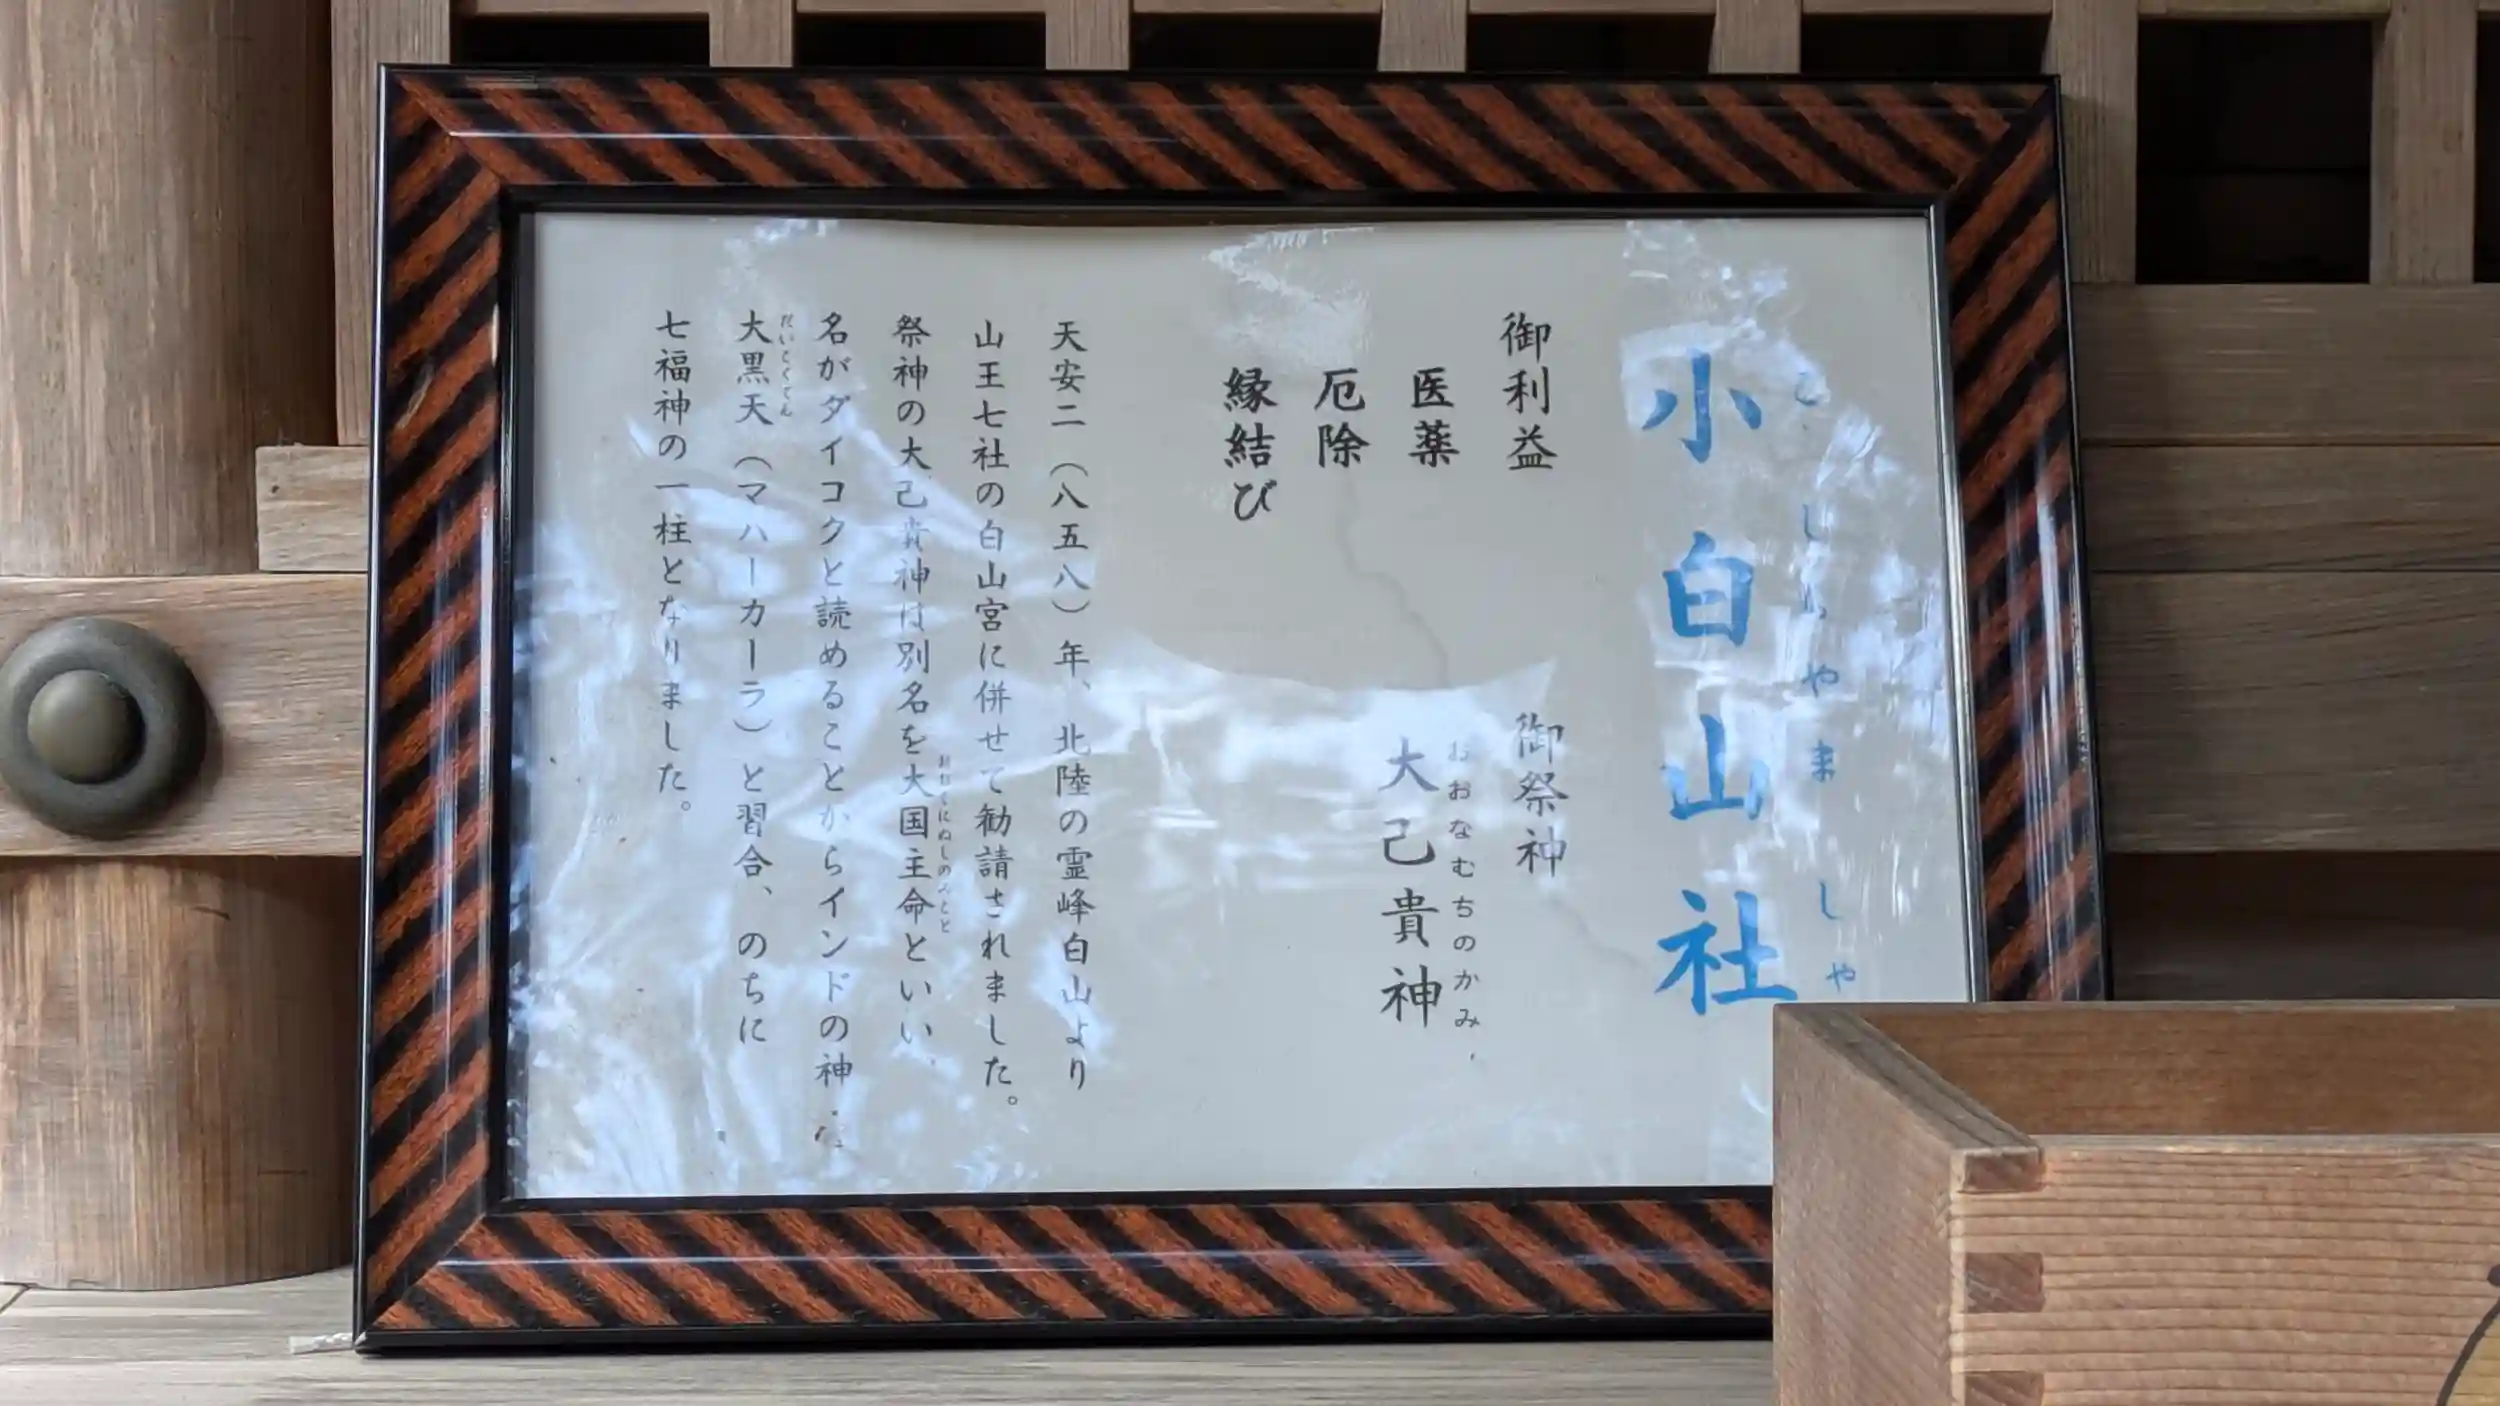 小白山社
こしらやましゃ
御利益
医薬
厄除
縁結び
御祭神
おおなむちのかみ
大己貴神
天安二（八五八）年、北陸の霊峰白山より
山王七社の白山宮に併せて勧請されました。
祭神の大己貴神は別名を大国主命といい、
おおくにぬしのみこと
名がダイコクと読めることからインドの神
大黒天（マハーカーラ）と習合、のちに
だいこくてん
七福神の一柱となりました。